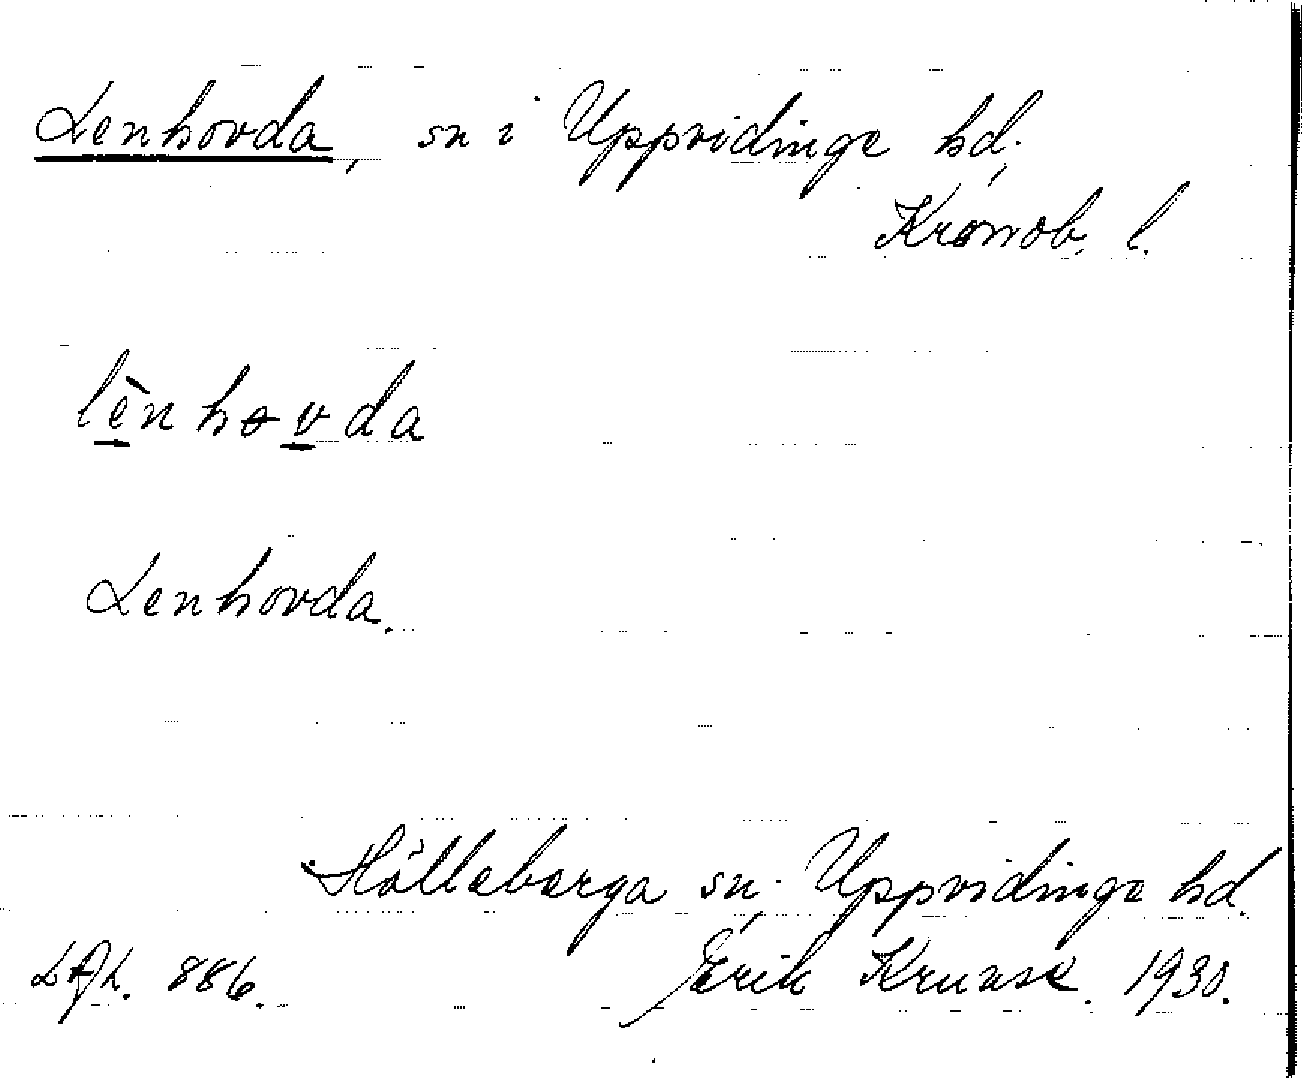 Lenhovda, sn i Uppvidinge hd.
Kronob. l.
lènhovda
Lenhovda.
Hälleberga sn. Uppvidinge hd.
886. Erik Kruuse. 1930.